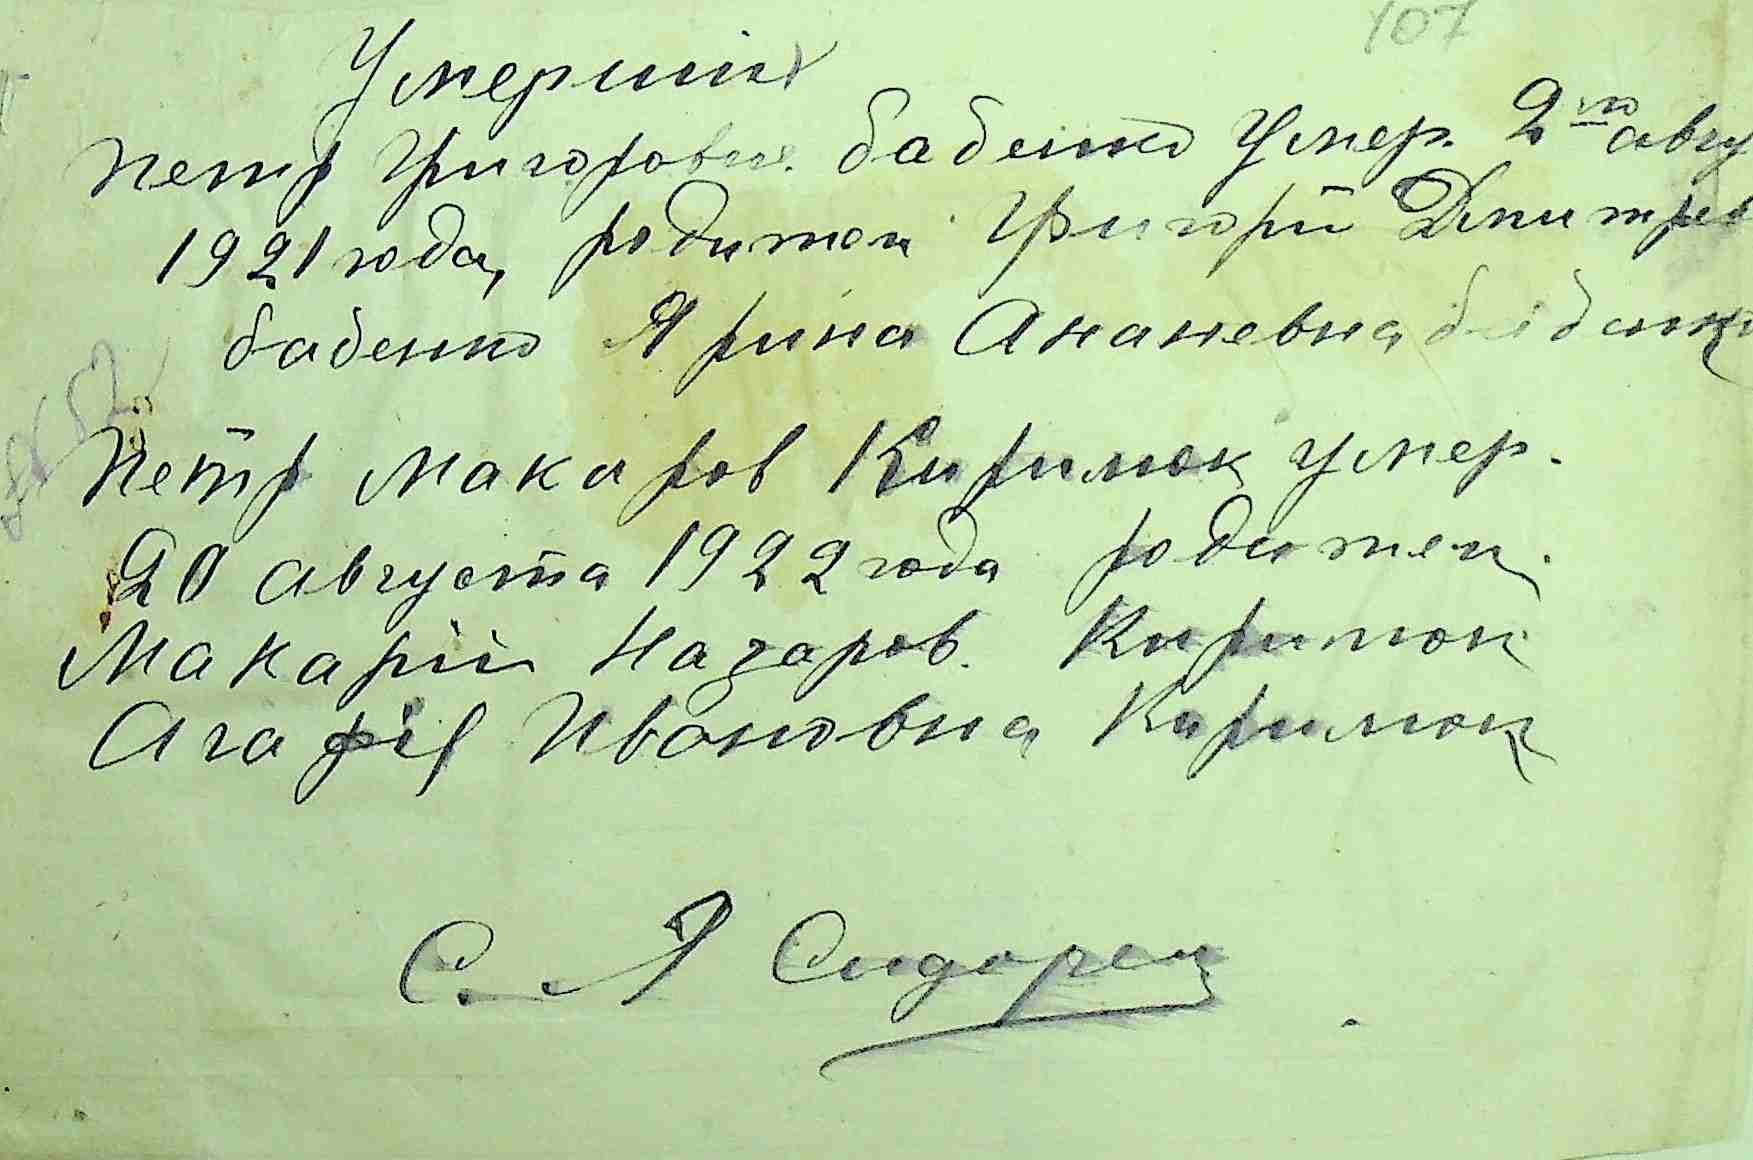 107
Умерших
Петр Григоров. бабенко Умер. 2го авгу
1921 года, родители Григорий Дмитрев
бабенко Ярина Ананевна бабенко
Петр Макаров Кирилюк умер.
20 августа 1922 года родители
Макарий Назаров. Кирилюк
Агафія Ивановна Кирилюк
С. Я Сидорец